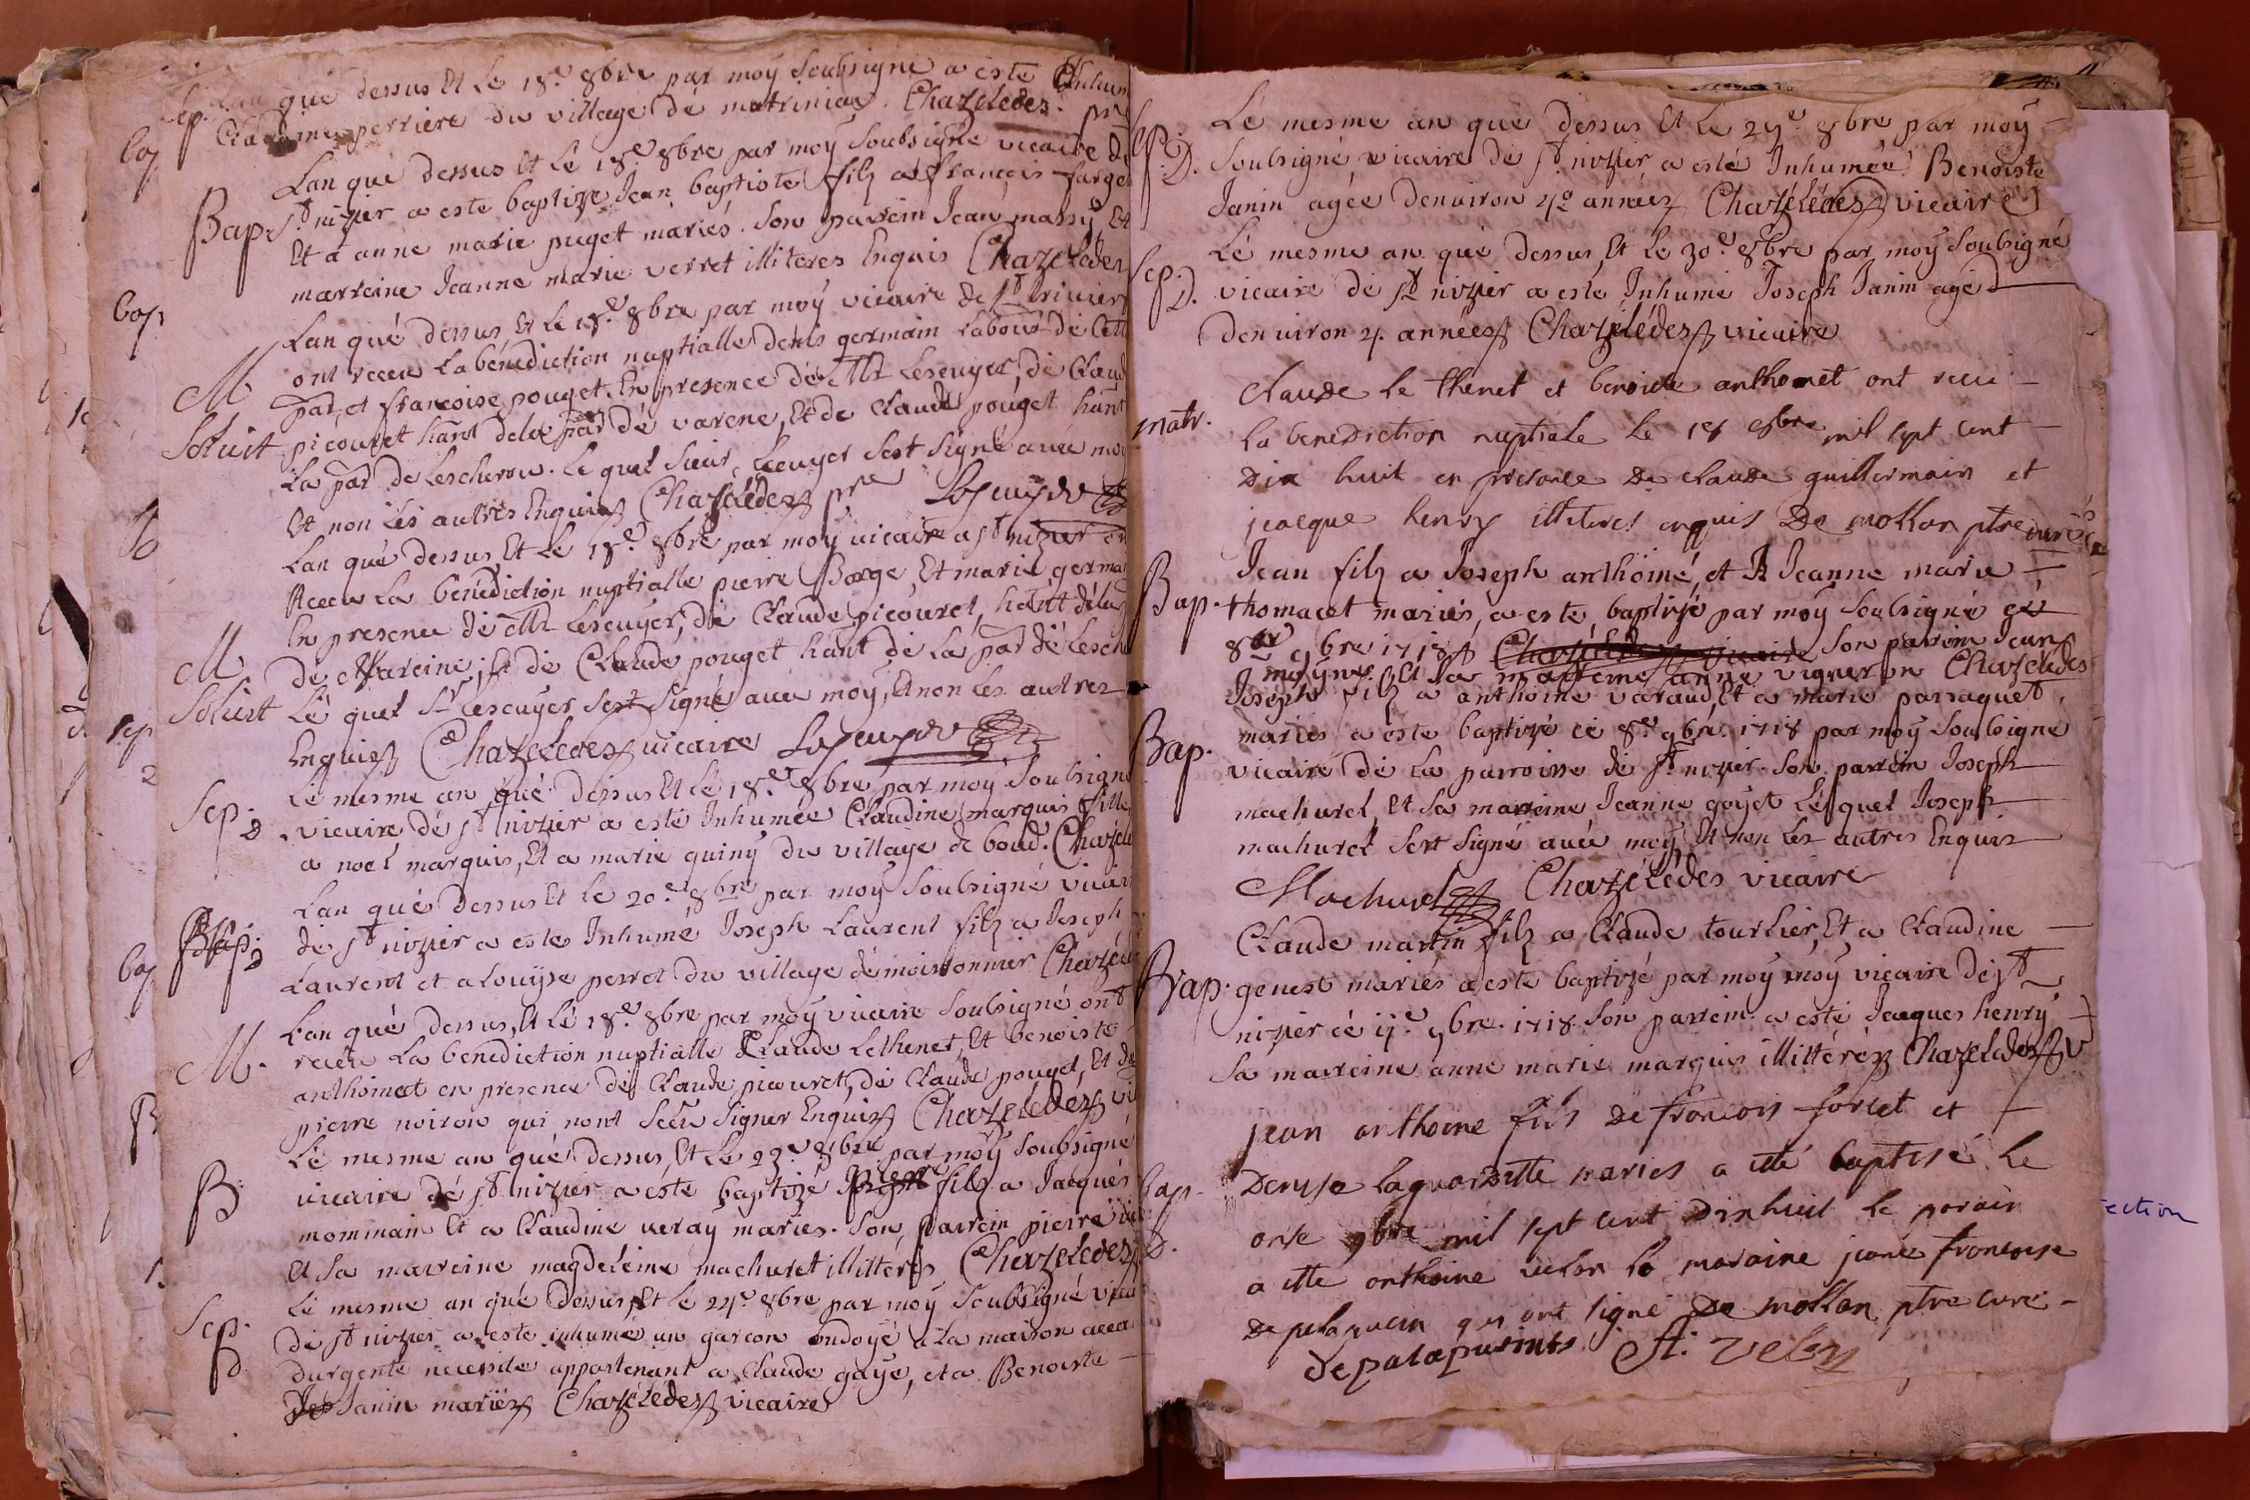 Sep. Lan que dessus Et Le 18.e 8bre par moÿ Soubsigné a este Enhum
Claudine perriere du village de matriniat. Chazeledes. pre
Lan que dessus Et Le 18.e 8bre par moy Soubsigné vicaire de
Bap. St nizier a este baptize Jean baptiste filz a françois farge
Et a anne marie puget mariés. Son parrein Jean massÿ, Et
marreine Jeanne marie verret illiteres Enquis Chazeledes
Lan qué dessus Et Le 18.e 8bre par moÿ vicaire de St trivier
M ont receu La bénédiction nuptialle denis germain Labour de cett
par, et francoise pouget. En presence de Mr Lescuyer, de Claud
Soluit picouret hant delad par de varene, Et de Claude pouget hant
La par de Lescheroux. Le quel Sieur Lescuyer Sest Signé avec moy
Et non Les autres Enquis Chazeledez pre Lescuyer
Lan qué dessus Et Le 18.e 8bre par moÿ vicaire a St nizier on
Receu La bénédiction nuptialle pierre Borge Et marie germa
En presence de Mr Lescuyer, de Claude picouret, hant delad
M de Mareine, Et de Claude pouget hant de La par de Lesch
Soluit Lé quel Sr Lescuyer Sest Signé avec moy, Et non Les autres
Enquis Chazeledes vicaire Lescuyer
Lé mesme an qué dessus Et Lé 18.e 8bre par moÿ Soubsigné
Sep. D. vicaire dé St nizier a esté Inhumée Claudine marquis fille
a noel marquis, Et a marie quiny du village de boud. Chazele
Lan qué dessus Et Le 20.e 8bre par moÿ Soubsigné vicair
de St nizier a este Inhumé Joseph Laurent filz a Joseph
Laurent et a Louyse perret du village de moissonnier Chazele
Lan qué dessus, Et Lé 18.e 8bre par moÿ vicaire Soubsigné ont
M. receu La benediction nuptialle Claude Lethenet, Et benoiste
anthomet en presence de Claude picouret, de Claude pouget, Et de
pierre noirou qui nont Sceu Signer Enquis Chazeledes vi
Lé mesme an qué dessus, Et Le 23.e 8bre par moÿ Soubsigné
B. vicaire dé St nizier a este baptizé pierre filz a Jacques
mommain Et a Claudine veray mariés. Son parrein pierre
Et Sa marreine magdeleine machuret illitterés Chazeledes
Lé mesme an qué dessus, Et Le 24.e 8bre par moÿ Soubsigné vicai
Sep. D. de St nizier a este inhumé un garcon ondoyé a La maison a cca
durgente necessite appartenant a Claude gaye, et a Benoiste
Janin mariéz Chazeledes vicaire
Lé mesme an qué dessus Et Le 29.e 8bre par moÿ
Sep. D. Soubsigné, vicaire dé St nizier, a esté Inhumée Benoiste
Janin agée denuiron 40 annéez Chazélédes vicaire
Lé mesme an qué dessus, Et Le 30.e 8bre par moÿ Soubsigné
Sep. D. vicaire dé St nizier a esté Inhumé Joseph Janin agé
denuiron 4. annéez Chazélédes vicaire
Claude le thenet et benoite anthomet ont receu
matr. la benediction nuptiale le 18 8bre mil sept cent
dix huit en presence de claude guillermain et
jacque henry illiteres enquis De mollan ptre curé
Jean filz a Joseph anthoiné, et a Jeanne marie
Bap. thomacet mariés, a este baptizé par moÿ Soubsigné cé
8.e 9bre 1718 Chazeledes vicaire Son parrein Jean
moyne. Et Sa marreine anne vigneron Chazeledes
Joseph filz a anthoine varaud, Et a marie parraquet
Bap. mariés a este baptizé cé 8.e 9bre. 1718 par moÿ Soubsigné
vicaire dé La parroisse de St nizier. Son parrein Joseph
machuret, Et Sa marreine Jeanne goyet Lé quel Joseph
machuret Sest Signé avec moÿ Et non Les autres Enquis
Machuret Chazélédes vicaire
Claude martin filz a Claude tourlier, Et a Claudine
Bap. genest mariés a este baptizé par moÿ moÿ vicaire de St
nizier cé 11.e 9bre. 1718 Son parrein a esté Jacques henry
Sa marreine anne marie marquis illittéréz Chazeledes V
jean anthoine fils de francois forlet et
bap. D. Denise laguaisette mariés a etté baptisé le
onse 9bre mil sept cent dixhuit le parain
a ette anthoine velon la maraine jeane francoise
De pelapucin qui ont signé De mollan ptre curé
depalapusints A. velon
ection